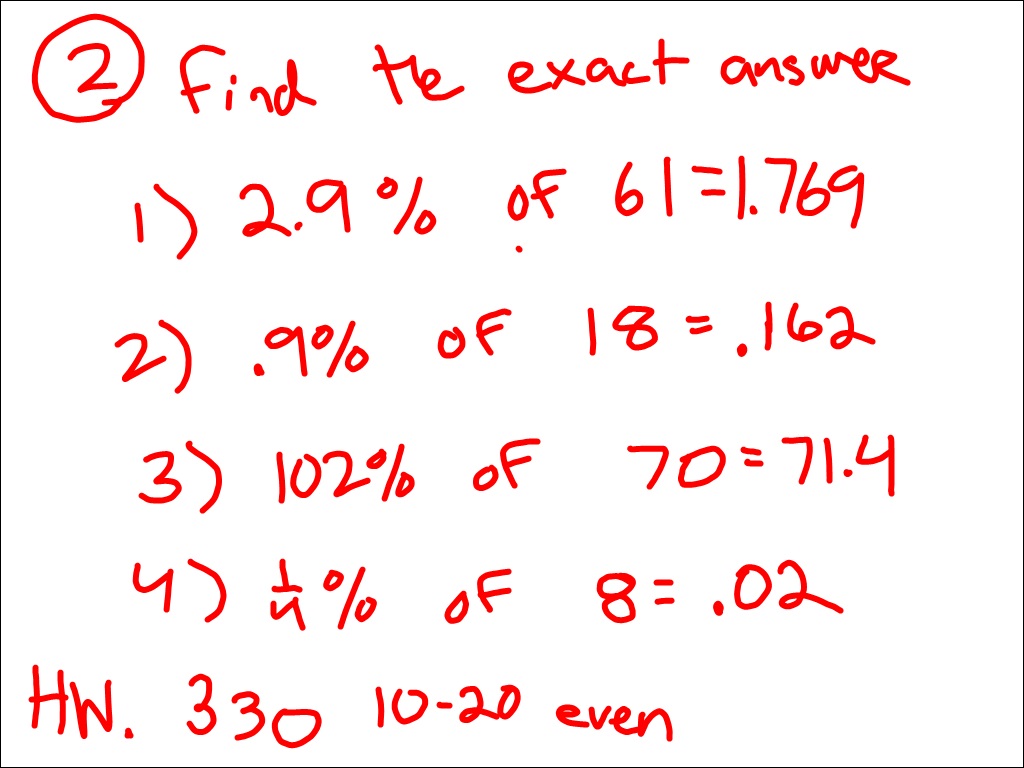 ② Find the exact answer
1) 2.9% of 61 = 1.769
2) .9% of 18 = .162
3) 102% of 70 = 71.4
4) 1/4% of 8 = .02
HW. 330 10-20 even